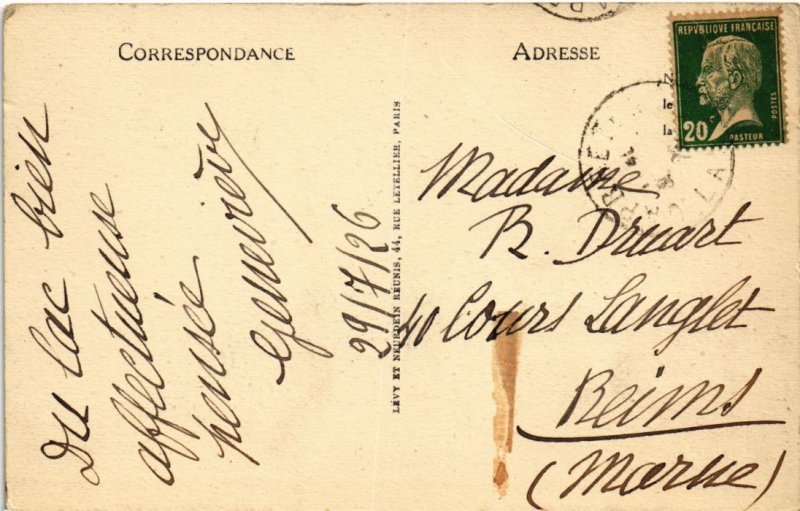 CORRESPONDANCE
Du lac bien
affectueuse
pensée
Geneviève
29/7/26
LÉVY ET NEURDEIN REUNIS, 44, RUE LETELLIER, PARIS
ADRESSE
REPVBLIQUE FRANÇAISE
20 c
PASTEUR
POSTES
N
le
la
Madame
R. Druart
40 Cours Langlet
Reims
(Marne)